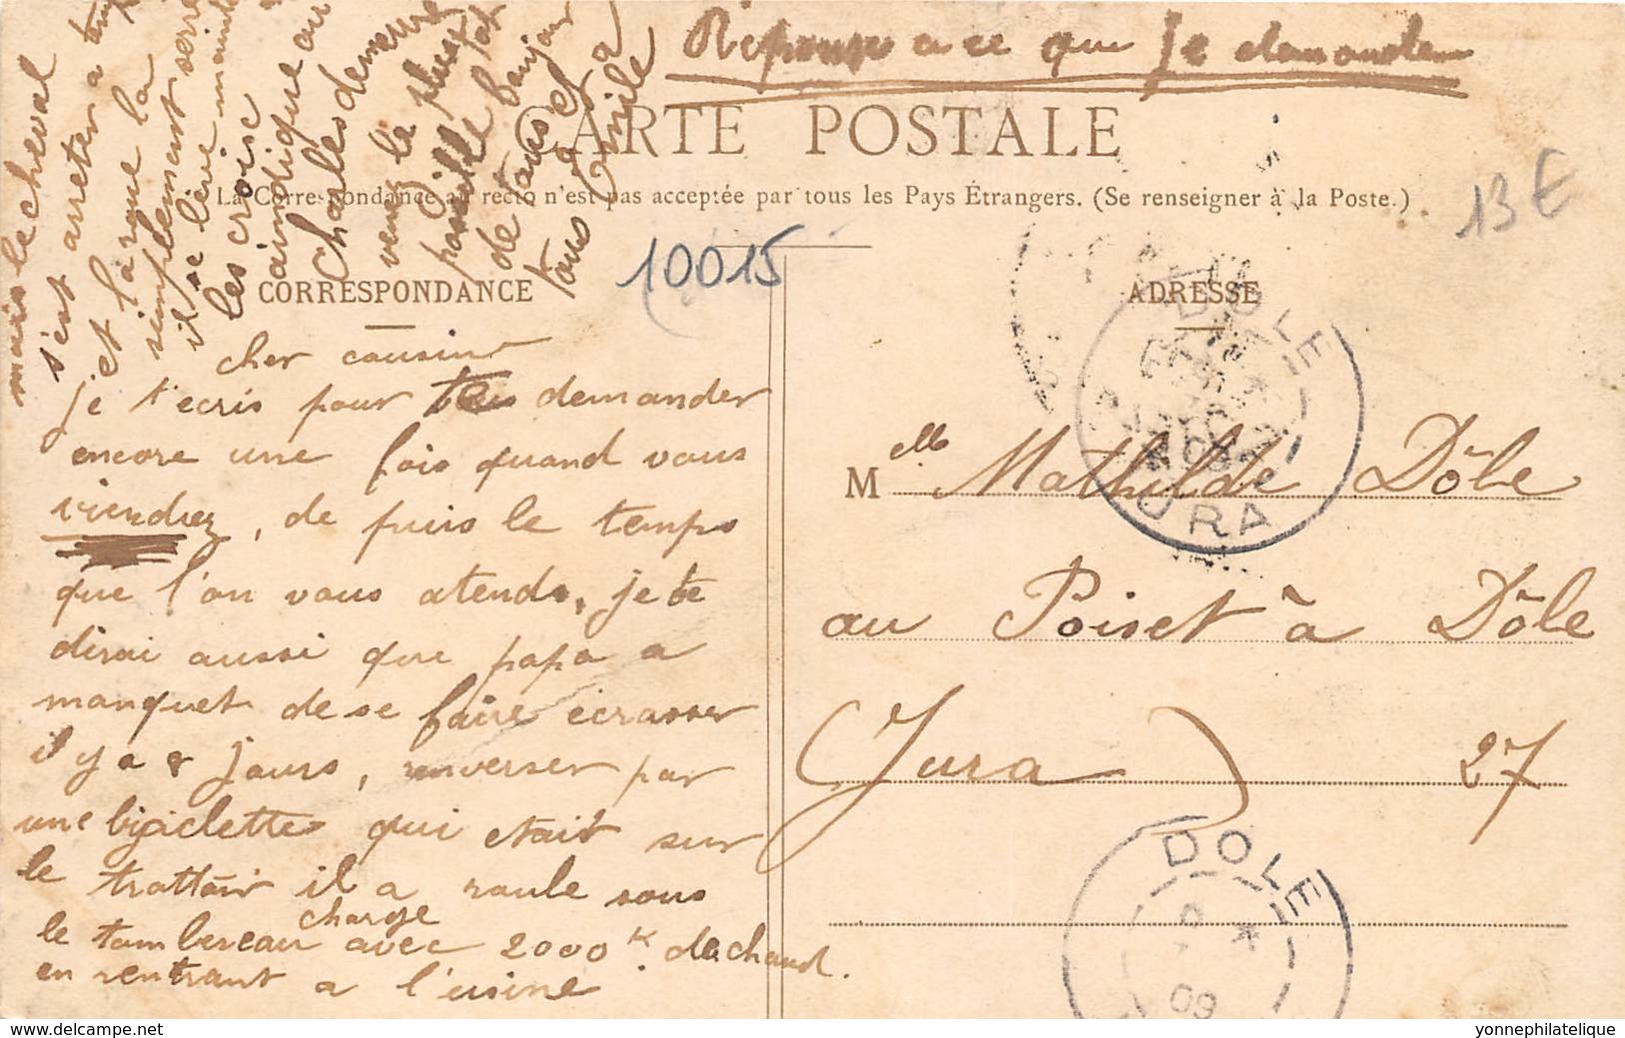 Réponse a ce que Je demande
CARTE POSTALE
La Correspondance au recto n'est pas acceptée par tous les Pays Étrangers. (Se renseigner à la Poste.)
13 €
10015
CORRESPONDANCE
cher cousine
je t'ecris pour te demander
encore une fois quand vous
viendrez, de puis le temps
que l'on vous atends, je te
dirai aussi que papa a
manquet de se faire ecrasser
il y a 8 jours, renverser par
une biciclettes qui etait sur
le trottoir il a roule sous
le tombereau charge avec 2000 K de chaud.
en rentrant a l'usine
mais le cheval
s'est arreter a temps
et la roue la
simplement serre
il se lève maint
les croise
aindique au
Charles demeure
venez le plus
possible
de bonjour
tous et
Camile
ADRESSE
M elle Mathilde Dôle
au Poiset à Dôle
(Jura) 27
DOLE
JURA
DOLE
09
www.delcampe.net
yonnephilatelique